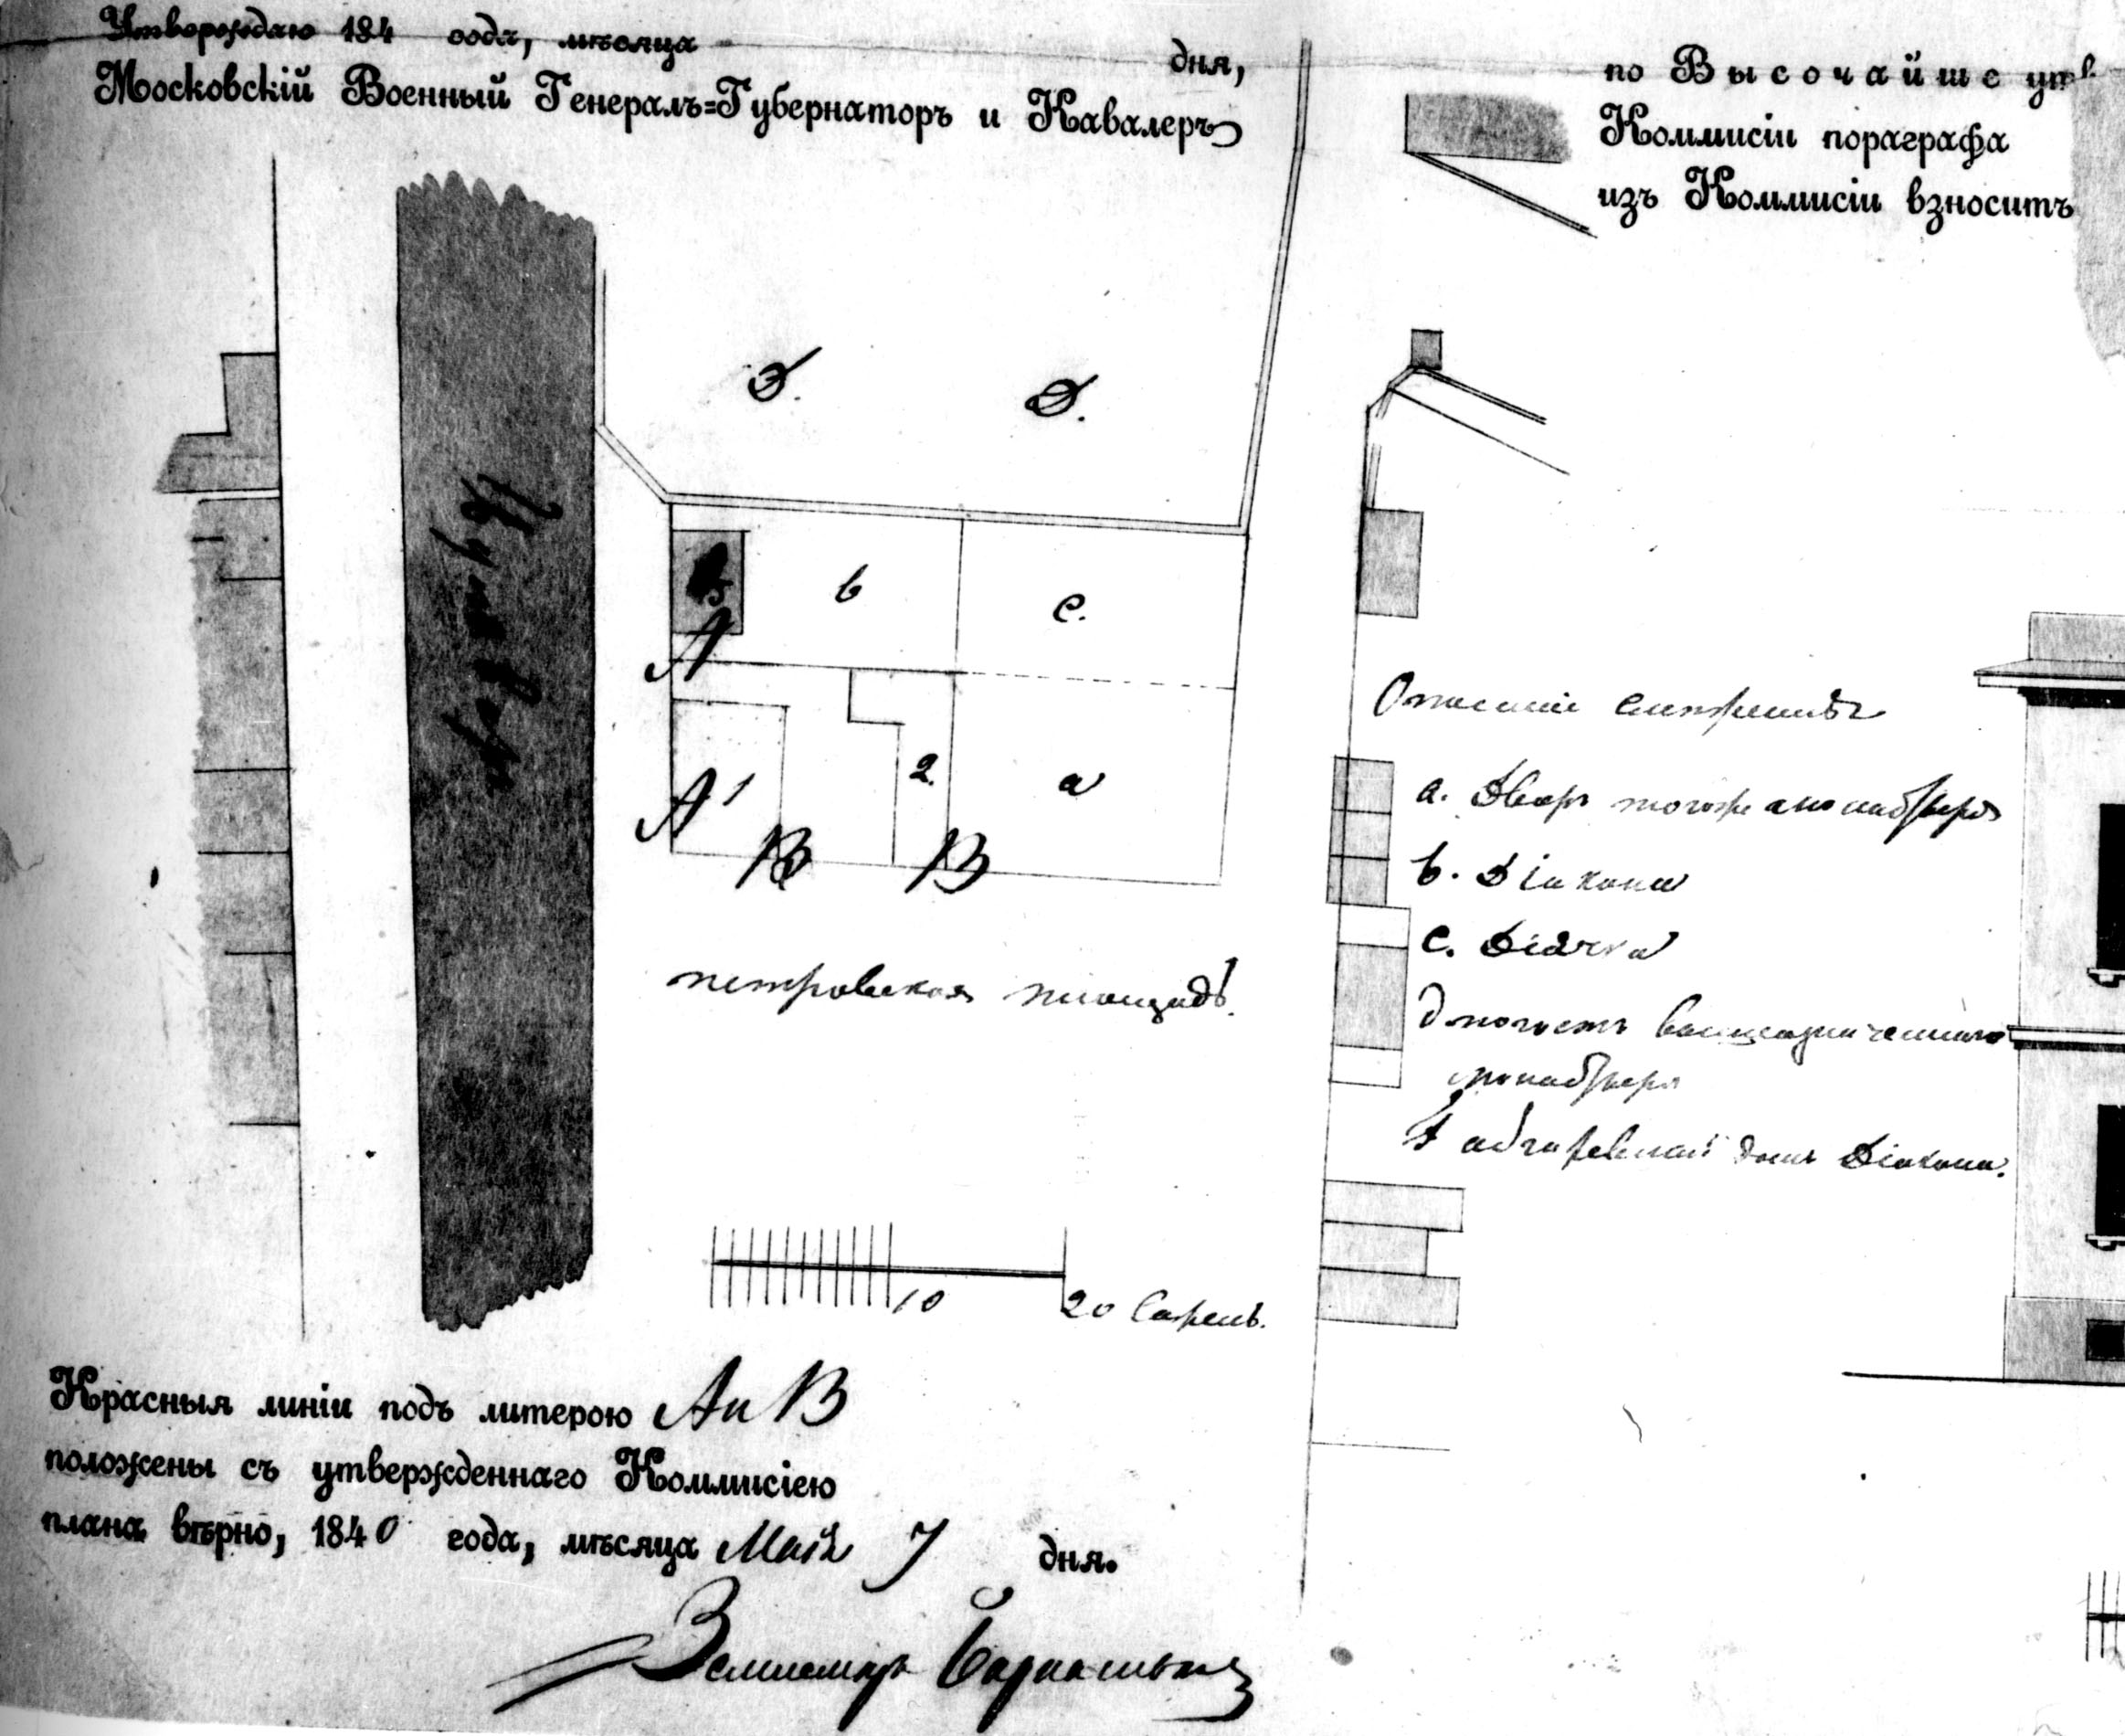 Утверождаю 184 года, мѣсяца дня,
Московскій Военный Генералъ=Губернаторъ и Кавалеръ
по Высочайше утв
Коммисіи пораграфа
изъ Коммисіи взноситъ
Д. Д.
в с.
А
А 1 2. а
В В
петровская площадь.
Описаніе смежность
а. Дворъ тогоже монастыря
в. Діакона
с. Дьячка
д погостъ вышеозначеннаго
монастыря
домъ Діакона.
10 20 Сажень.
Красныя линіи подъ литерою А и В
положены съ утвержденнаго Коммисіею
плана вѣрно, 1840 года, мѣсяца Маія 7 дня.
Землемѣръ